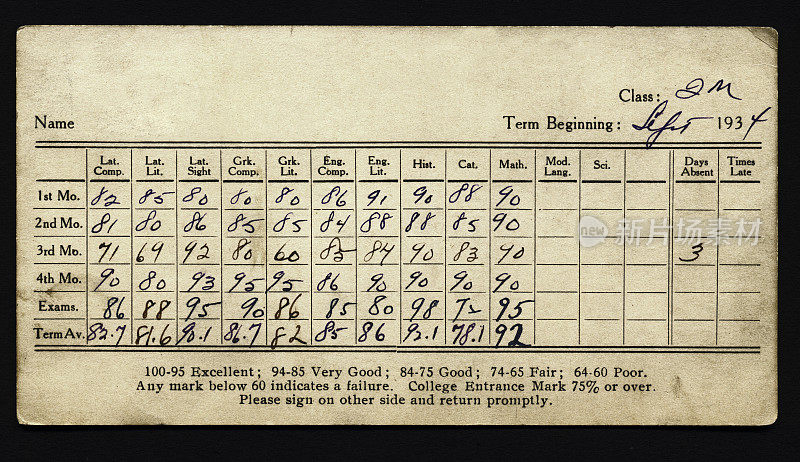 Class: 2 M
Name Term Beginning: Sept 1934
Lat. Comp. Lat. Lit. Lat. Sight Grk. Comp. Grk. Lit. Eng. Comp. Eng. Lit. Hist. Cat. Math. Mod. Lang. Sci. Days Absent Times Late
1st Mo. 82 85 80 80 80 86 91 90 88 90
2nd Mo. 81 80 86 85 85 84 88 88 85 90
3rd Mo. 71 69 92 80 60 85 84 90 83 90 3
4th Mo. 90 80 93 95 95 86 90 90 90 90
Exams. 86 88 95 90 86 85 80 98 95
Term Av. 82.7 81.6 90.1 86.7 82 85 86 92.1 78.1 92
100-95 Excellent; 94-85 Very Good; 84-75 Good; 74-65 Fair; 64-60 Poor.
Any mark below 60 indicates a failure. College Entrance Mark 75% or over.
Please sign on other side and return promptly.
new 新片场素材